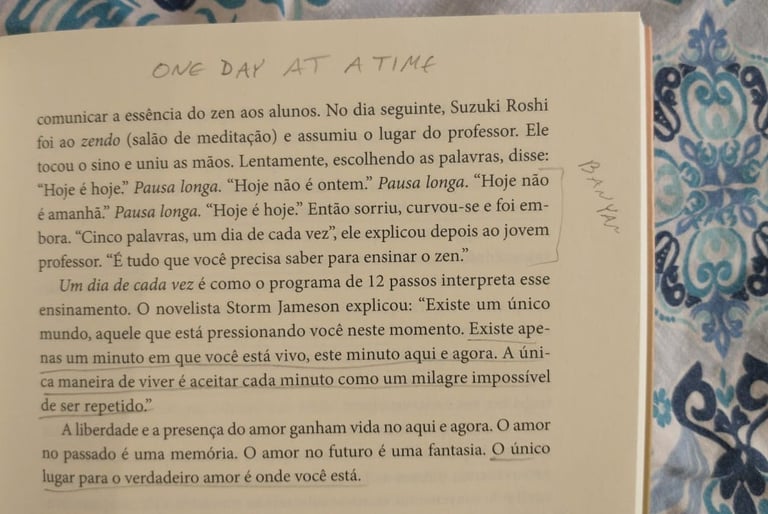 ONE DAY AT A TIME
comunicar a essência do zen aos alunos. No dia seguinte, Suzuki Roshi
foi ao zendo (salão de meditação) e assumiu o lugar do professor. Ele
tocou o sino e uniu as mãos. Lentamente, escolhendo as palavras, disse:
“Hoje é hoje.” Pausa longa. “Hoje não é ontem.” Pausa longa. “Hoje não
é amanhã.” Pausa longa. “Hoje é hoje.” Então sorriu, curvou-se e foi em-
bora. “Cinco palavras, um dia de cada vez”, ele explicou depois ao jovem
professor. “É tudo que você precisa saber para ensinar o zen.”
BANYAN
Um dia de cada vez é como o programa de 12 passos interpreta esse
ensinamento. O novelista Storm Jameson explicou: “Existe um único
mundo, aquele que está pressionando você neste momento. Existe ape-
nas um minuto em que você está vivo, este minuto aqui e agora. A úni-
ca maneira de viver é aceitar cada minuto como um milagre impossível
de ser repetido.”
A liberdade e a presença do amor ganham vida no aqui e agora. O amor
no passado é uma memória. O amor no futuro é uma fantasia. O único
lugar para o verdadeiro amor é onde você está.